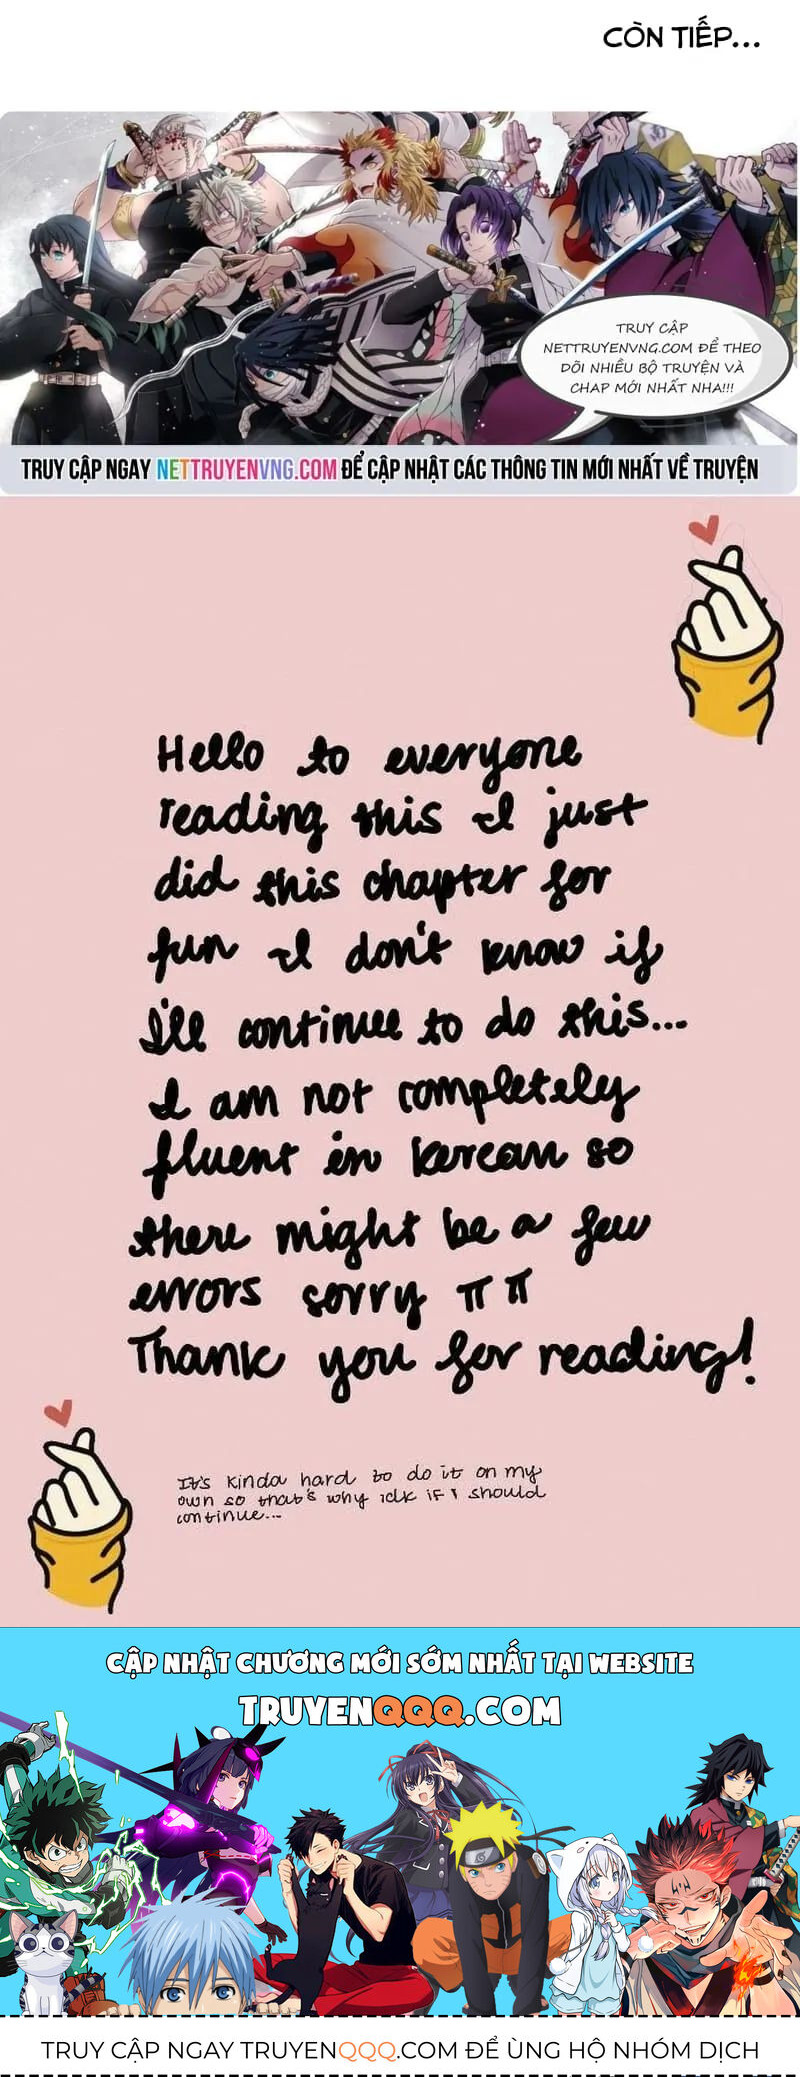 CÒN TIẾP...
TRUY CẬP
NETTRUYENVNG.COM ĐỂ THEO
DÕI NHIỀU BỘ TRUYỆN VÀ
CHAP MỚI NHẤT NHA!!!
TRUY CẬP NGAY NETTRUYENVNG.COM ĐỂ CẬP NHẬT CÁC THÔNG TIN MỚI NHẤT VỀ TRUYỆN
Hello to everyone
reading this I just
did this chapter for
fun I don't know if
I'll continue to do this...
I am not completely
fluent in korean so
there might be a few
errors sorry ㅠㅠ
Thank you for reading!
It's kinda hard to do it on my
own so that's why idk if I should
continue...
CẬP NHẬT CHƯƠNG MỚI SỚM NHẤT TẠI WEBSITE
TRUYENQQQ.COM
TRUY CẬP NGAY TRUYENQQQ.COM ĐỂ ỦNG HỘ NHÓM DỊCH